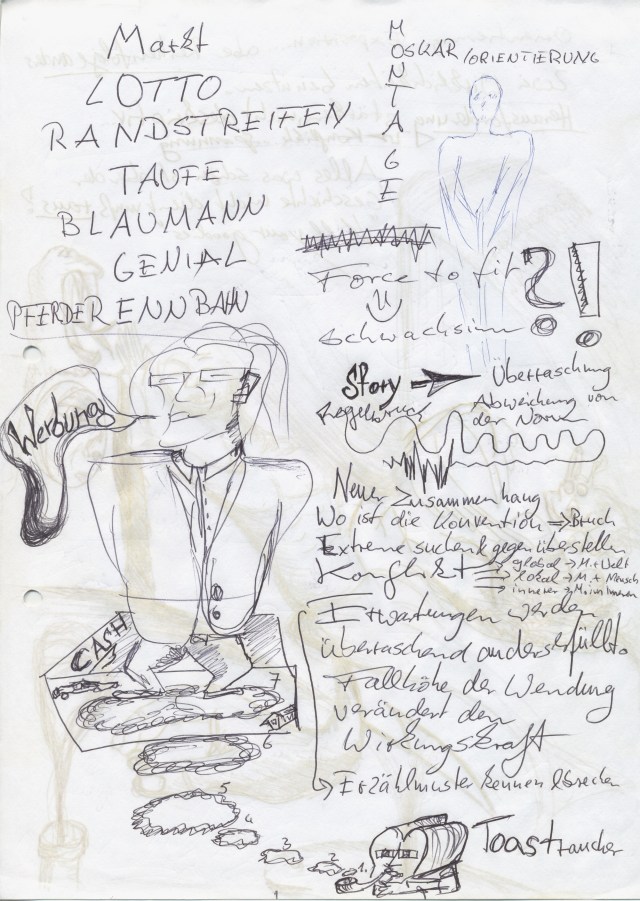 Markt
LOTTO
RANDSTREIFEN
TAUFE
BLAUMANN
GENIAL
PFERDERENNBAHN
MONTAGE
OSKAR/ORIENTIERUNG
Force to fit ?!
Schwachsinn
Story → Überraschung
Regelbruch Abweichung von
der Norm
Werbung
Neuer Zusammenhang
Wo ist die Konvention ⇒ Bruch
Extreme suchen & gegenüberstellen
Konflikt
global → M. + Welt
lokal → M. + Mensch
innerer → M. in Innen
Erwartungen werden
überraschend anders erfüllt.
Fallhöhe der Wendung
verändert den
Wirkungskraft
→ Erzählmuster kennen & brechen
CASH
7
6
5
4
3
2
1.
Toastraucher